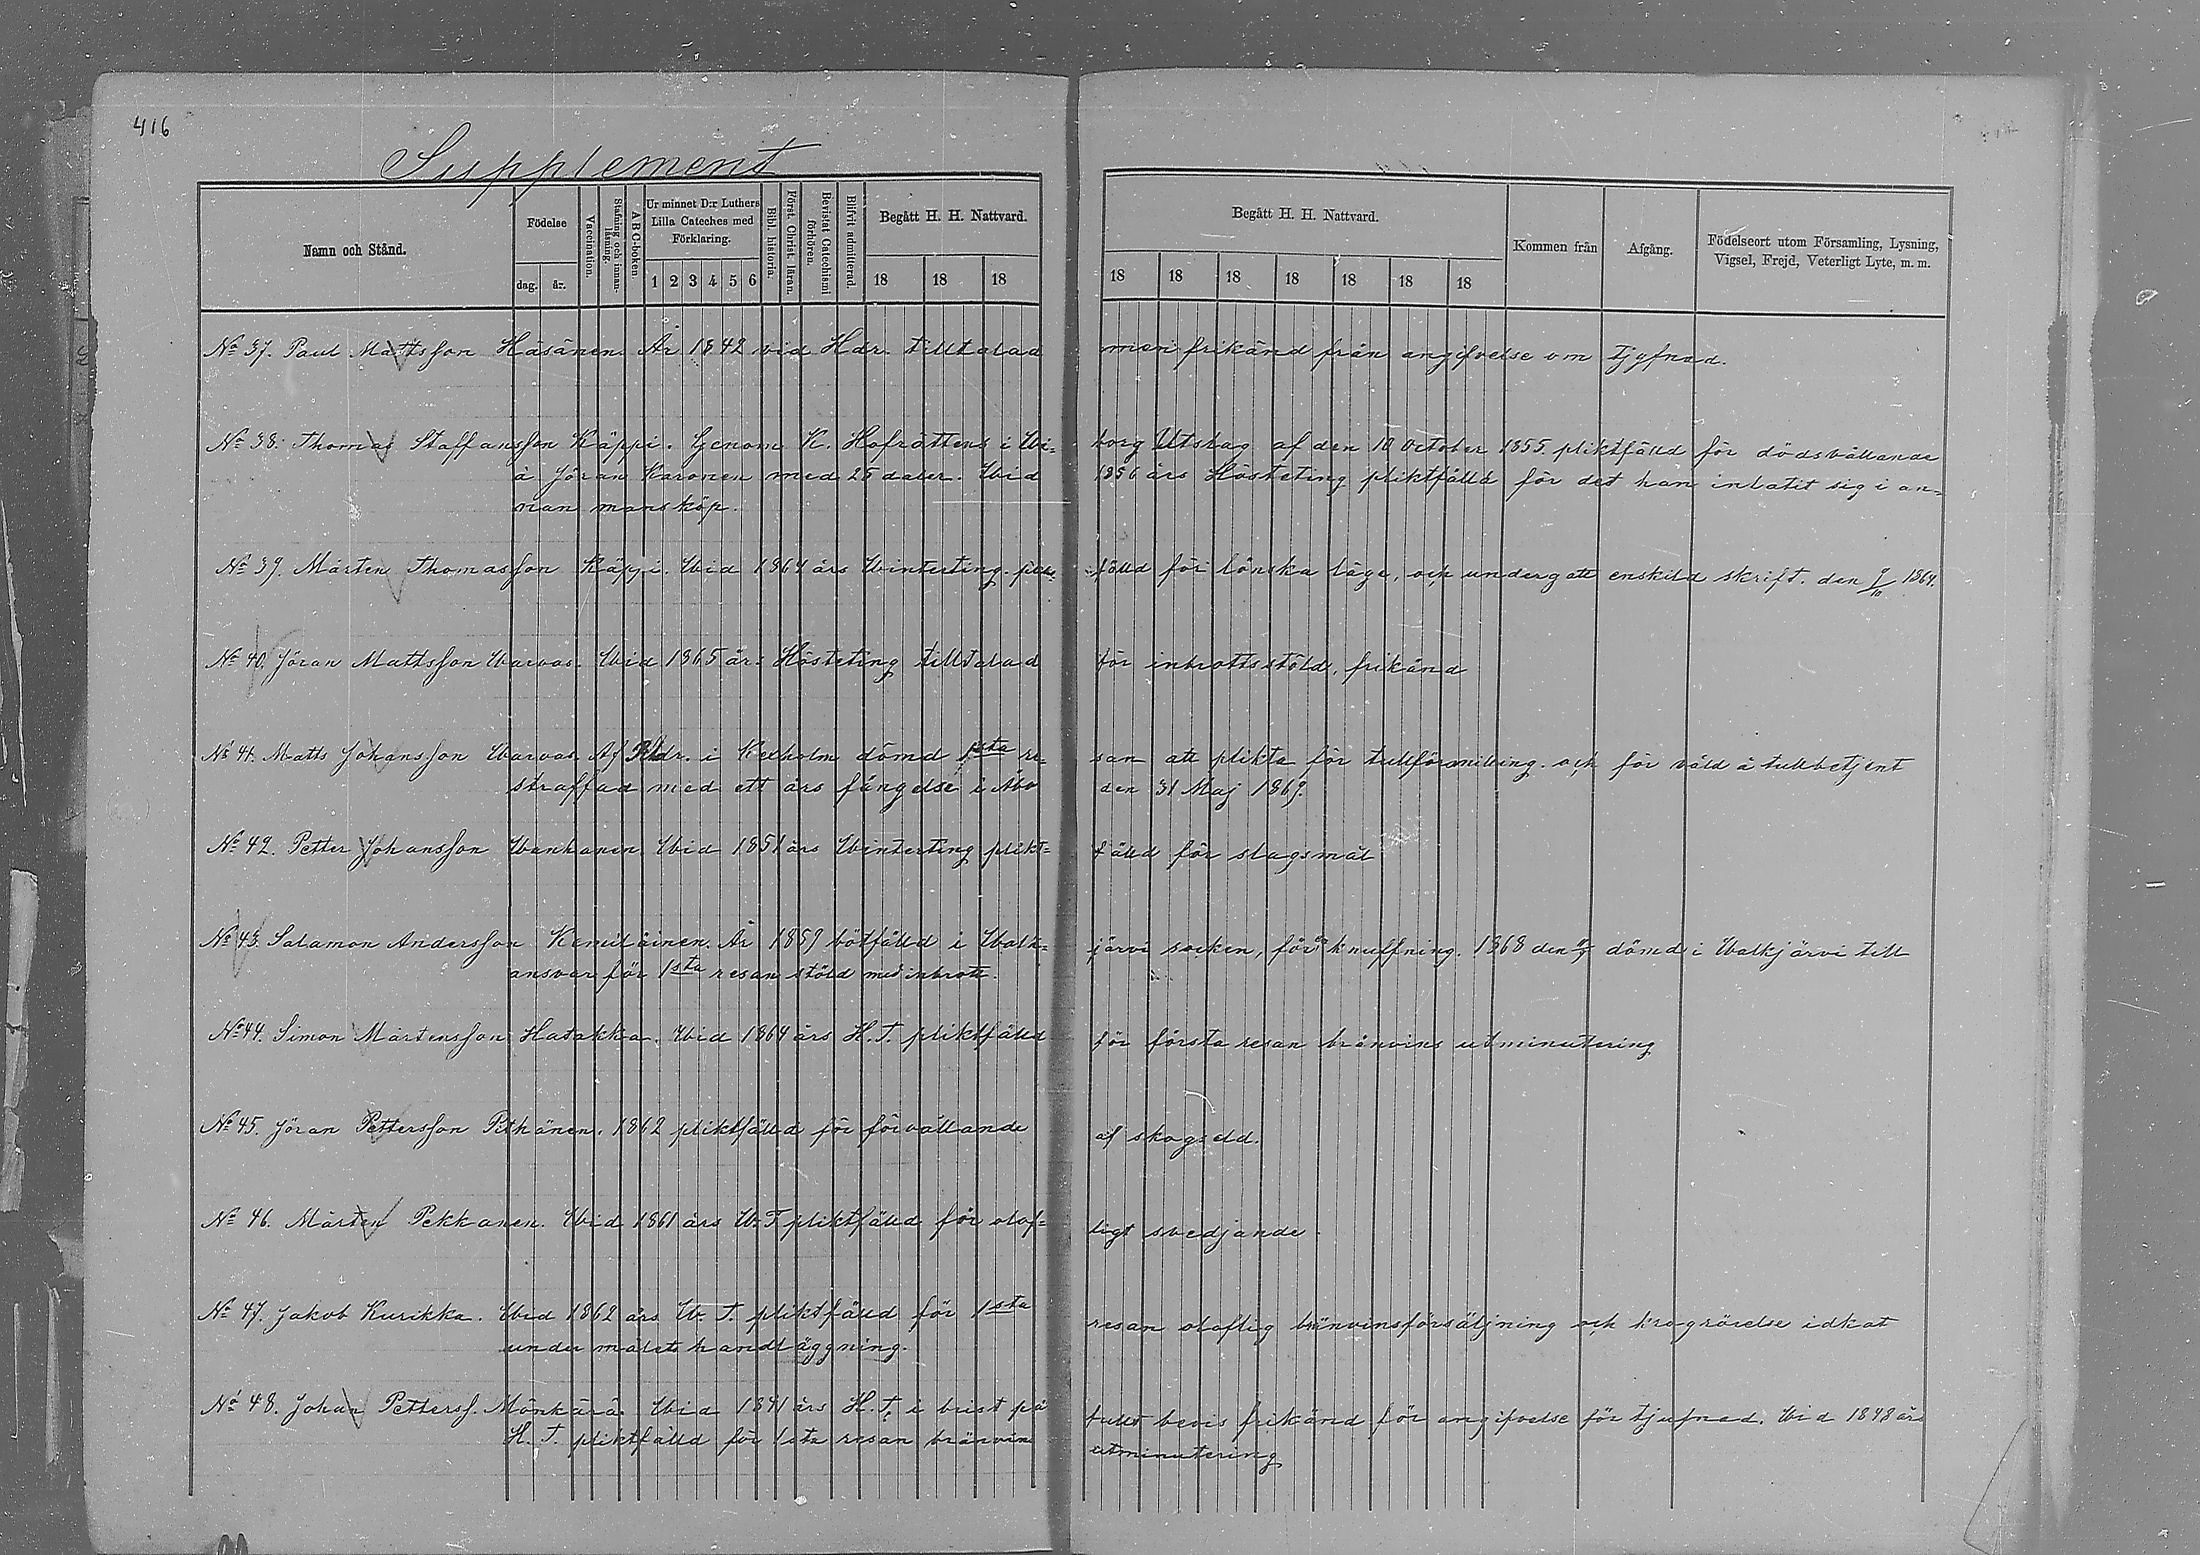 416
Supplement
Namn och Stånd.
Födelse
dag.
år.
Vaccination.
Stafning och innanläsning.
ABC-boken
Ur minnet D:r Luthers Lilla Cateches med Förklaring.
1 2 3 4 5 6
Bibl. historia.
Först. Christ. läran.
Bevistat Catechismi förhören.
Blifvit admitterad.
Begått H. H. Nattvard.
18 18 18
Begått H. H. Nattvard.
18 18 18 18 18 18 18
Kommen från
Afgång.
Födelseort utom Församling, Lysning, Vigsel, Frejd, Veterligt Lyte, m. m.
No 37. Paul Mattsson Häsänen. År 1842 vid Hdr. tilltalad men frikänd från angifvelse om tjyfnad.
No 38. Thomas Staffansson Käppi. Genom K. Hofrättens i Wi= borg Utslag af den 10 October 1855 pliktfälld för dödsvållande
å Jöran Karonen med 25 daler. Wid 1856 års Hösteting pliktfälld för det han inlatit sig i an=
nan mans köp.
No 39. Mårten Thomasson Käppi. Wid 1864 års Winterting fälld för lönska läge, och undergått enskild skrift. den 9/10 1864.
No 40. Jöran Mattsson Warvas. Wid 1865 års Hösteting tilltalad för inbrottsstöld, frikänd
No 41. Matts Johansson Warvas. Af Hdr. i Kexholm dömd 1sta re= san att plikta för tullförsnilling. och för våld å tullbetjent
straffad med ett års fängelse i Åbo den 31 Maj 1869.
No 42. Petter Johansson Wanhanen Wid 1851 års Winterting plikt= fälld för slagsmål
No 43. Salamon Andersson Kemiläinen. År 1859 bötfälld i Walk= järvi socken, för knuffning. 1868 den dömd i Walkjärvi till
ansvar för 1sta resan stöld med inbrott.
No 44. Simon Mårtensson Hatakka. Wid 1864 års H. T. pliktfälld för första resan bränvins utminutering
No 45. Jöran Pettersson Pitkänen. 1862 pliktfälld för förvållande af skogseld.
No 46. Mårten Pekkanen. Wid 1861 års W. T pliktfälld för olof= ligt svedjande.
No 47. Jakob Kurikka. Wid 1862 års W. T. pliktfälld för 1sta resan oloflig bränvinsförsäljning och krogrörelse idkat
under målets handläggning.
No 48. Johan Petterss. Mönkärä. Wid 1841 års H. T. i brist på fullt bevis frikänd för angifvelse för tjufnad. Wid 1848 års
H. T. pliktfälld för 1sta resan bränvins utminutering